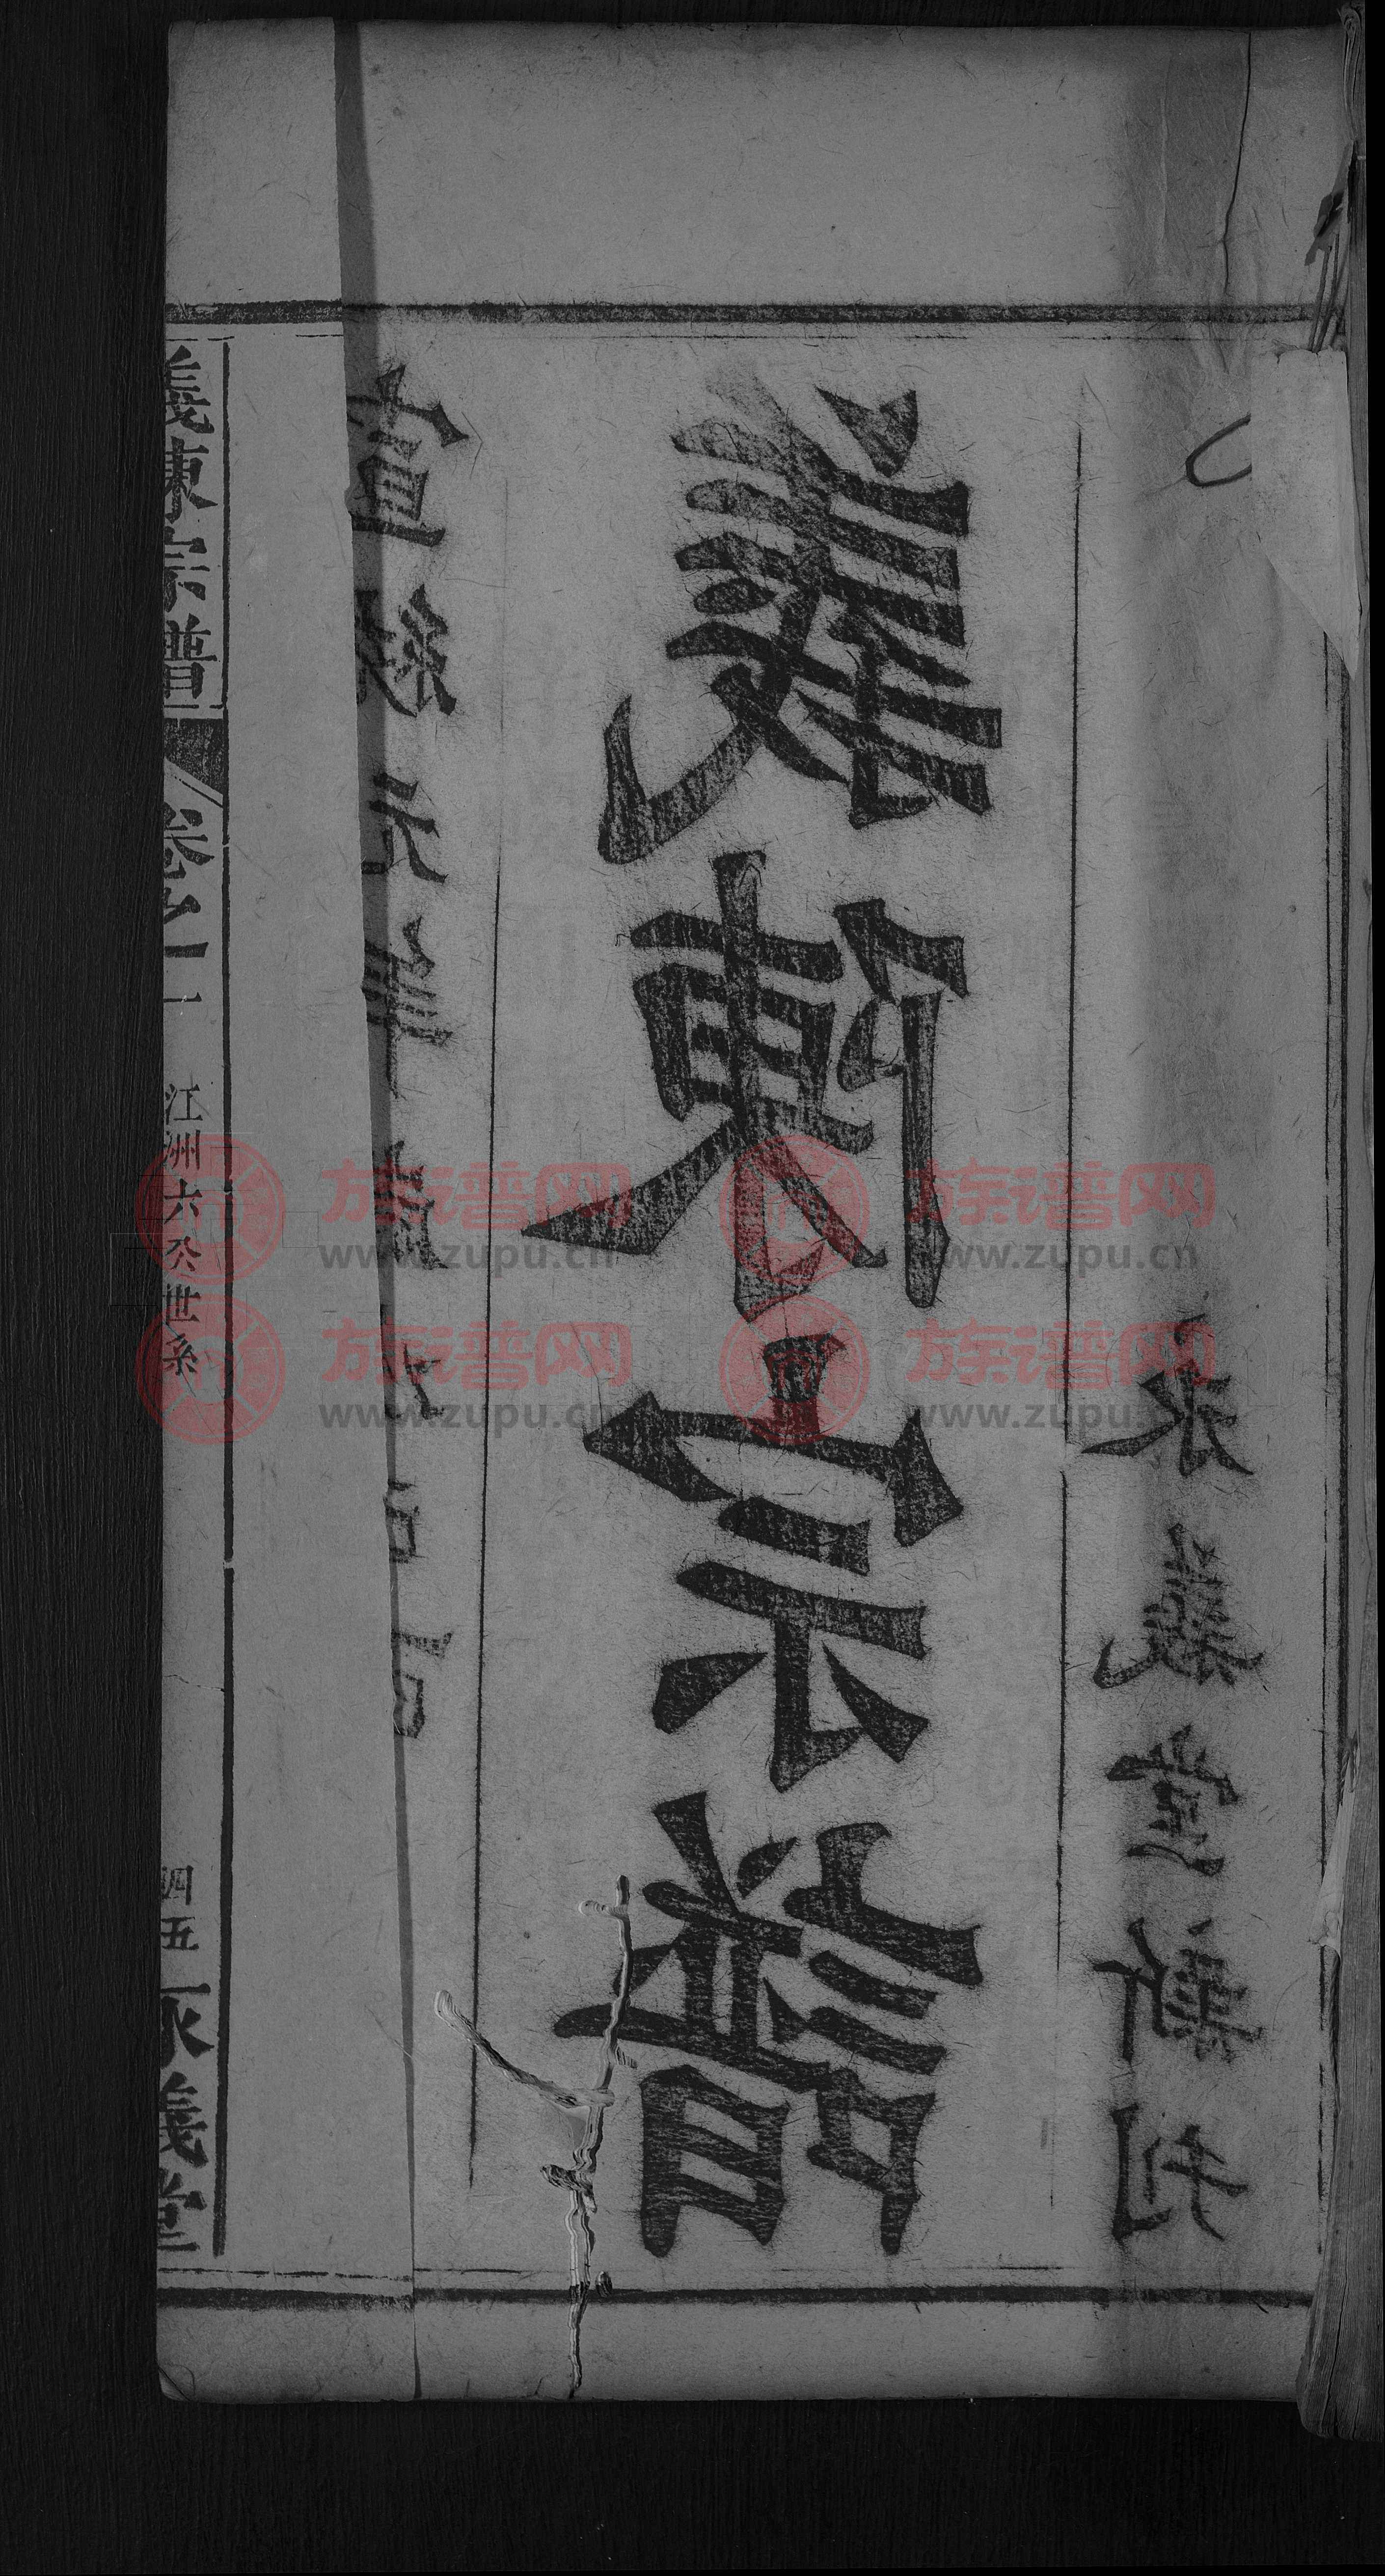 宣統元年歲次己酉
義陳宗譜
永義堂新刊
義陳宗譜 卷 江洲六公世系 四五 永義堂
族谱网 www.zupu.cn
族谱网 www.zupu.cn
族谱网 www.zupu.cn
族谱网 www.zupu.cn